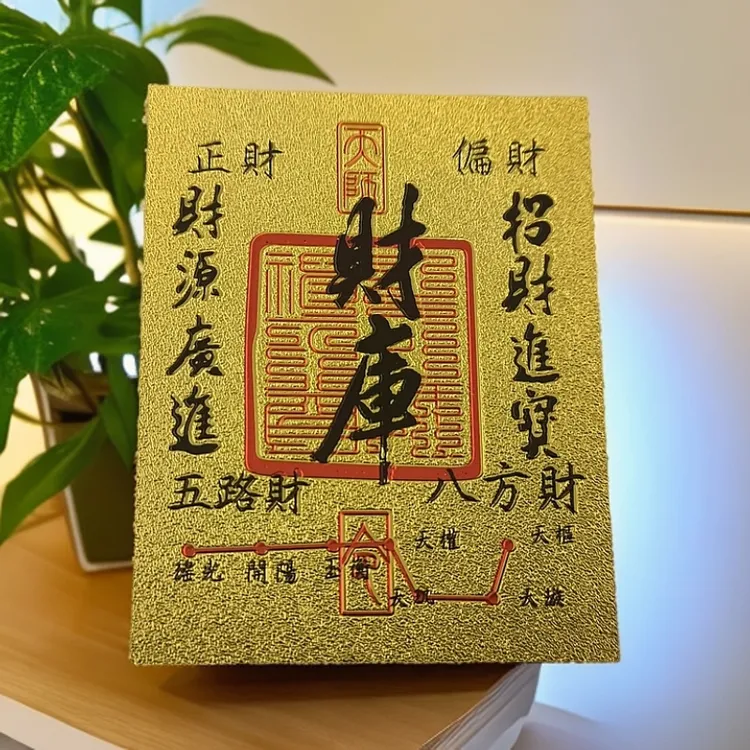 正財
天師
偏財
財源廣進
財庫
招財進寶
五路財
八方財
天權
天樞
開陽
玉衡
天璇